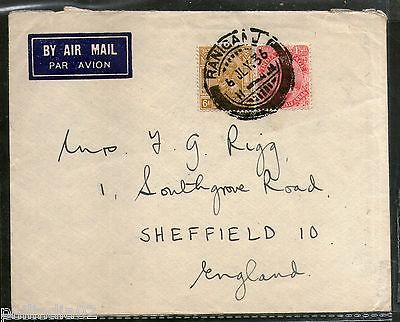 BY AIR MAIL
PAR AVION
RANIGANJ
6 JLY 36
Mrs F. G. Rigg,
1, Southgrove Road,
SHEFFIELD 10
England.
philindia02